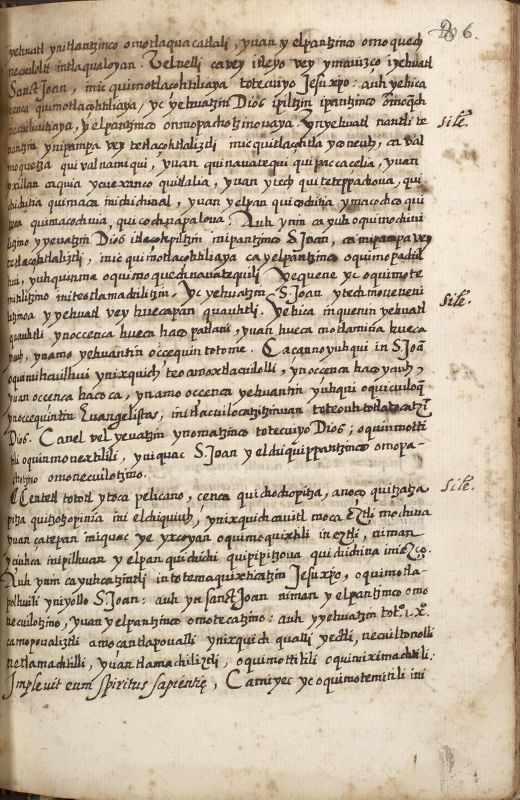 206.
yehuatl ynitlantzinco omotlaquacatlali, yuan y elpantzinco omoquech
necuiloltí intlaqualoyan. Velnelli ca vey itleyo vey ymauizço iyehuatl
Sanct Joan, inic quimotlaçohtiliaya totecuiyo Jesu xpo: auh yehica
cenca quimotlaçohtiliaya, yc yehuatzin Dios ipiltzin ipantzinco
y elpantzinco onmopachotzinouaya. Ynyehuatl nantli te
nantzin ynipampa vey tetlaçohtlaliztli inic quitlaçohtla yconeuh, ca val
moquetza qui valnamiqui, yuan quinauatequi quipaccacelia, yuan
yxillan caquia ycuexanco quitlalia, yuan ytech quiteteppachoua, qui
chichitia quimaca inichichiual, yuan y elpan quicochitia ymacochco qui
quimacochuia, quicochnapaloua. Auh ynin ca yuh oquimochiui
litzino yyevatzin Dios itlaçotepiltzin inipantzinco S. Joan, ca inipampa vey
tetlaçohtlaliztli, inic quimotlaçohtiliaya ca yelpantzinco oquimopachil
hui, yuhquinma oquimoquechnauatequili. Yequene yc oquimote
mitlilitzino initeotlamachilitzin. Yc yehuatzin S. Joan ytech moneneui
litzinoa y yehuatl vey huecapan quauhtli. Yehica inquenin yehuatl
quauhtli ynoccenca hueca haco patlani, yuan hueca motlamina hueca
yauh, ynamo yehuantin occequin totome. Ca çanno yuhqui in S. Joã
oquimihcuilhui ynixquich teoamoxtlacuilolli, ynoccenca haco yauh,
yuan occenca hacoca, ynamo occenca yehuantin yuhqui oquicuiloq̃
ynoccequintin Euangelistas, initlacuilocatzitzinuan toteouh totlatocatzĩ
Dios. Ca nel vel yevatzin ynomatzinco totecuiyo Dios; oquinmotti
tili oquinmonextilili, yniquac S. Joan y elchiquippantzinco omopa-
chotzino omonecuilotzino.
Centetl tototl ytoca pelicano, cenca quichochopitza, anoço quitzatza
pitza quitzotzopinia ini elchiquiuh, ynixquichcauitl moca eztli mochiua
yuan çatepan iniquac ye yxcoyan oquimoquixtili in eztli, niman
yciuhca inipilhuan y elpan quichichi quipipitzoua quichichina iniezço.
Auh ynin ca yuhcatzintli in totemaquixticatzin Jesu xpo, oquimotla-
polhuili yniyollo S. Joan: auh yn sanct Joan niman y elpantzinco omo
necuilotzino, yuan y elpantzinco omotecatzino: auh yyehuatzin totº. i. xº.
camopoualiztli amo çantlapoualli ynixquich qualli yectli, necuiltonolli
netlamachtilli, yuan tlamachiliztli, oquimottitili oquimiximachtili:
Impleuit eum spiritus sapientię, Ca miyec yc oquimotemitili ini